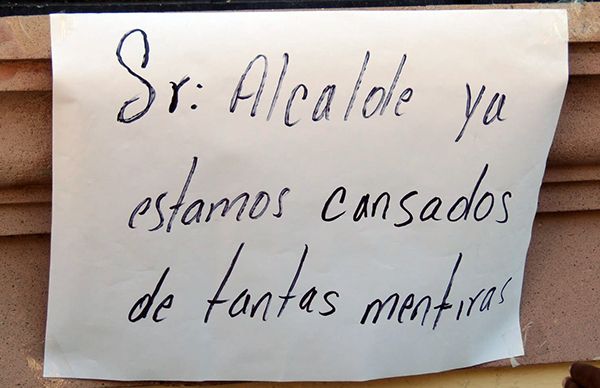 Sr: Alcalde ya
estamos cansados
de tantas mentiras